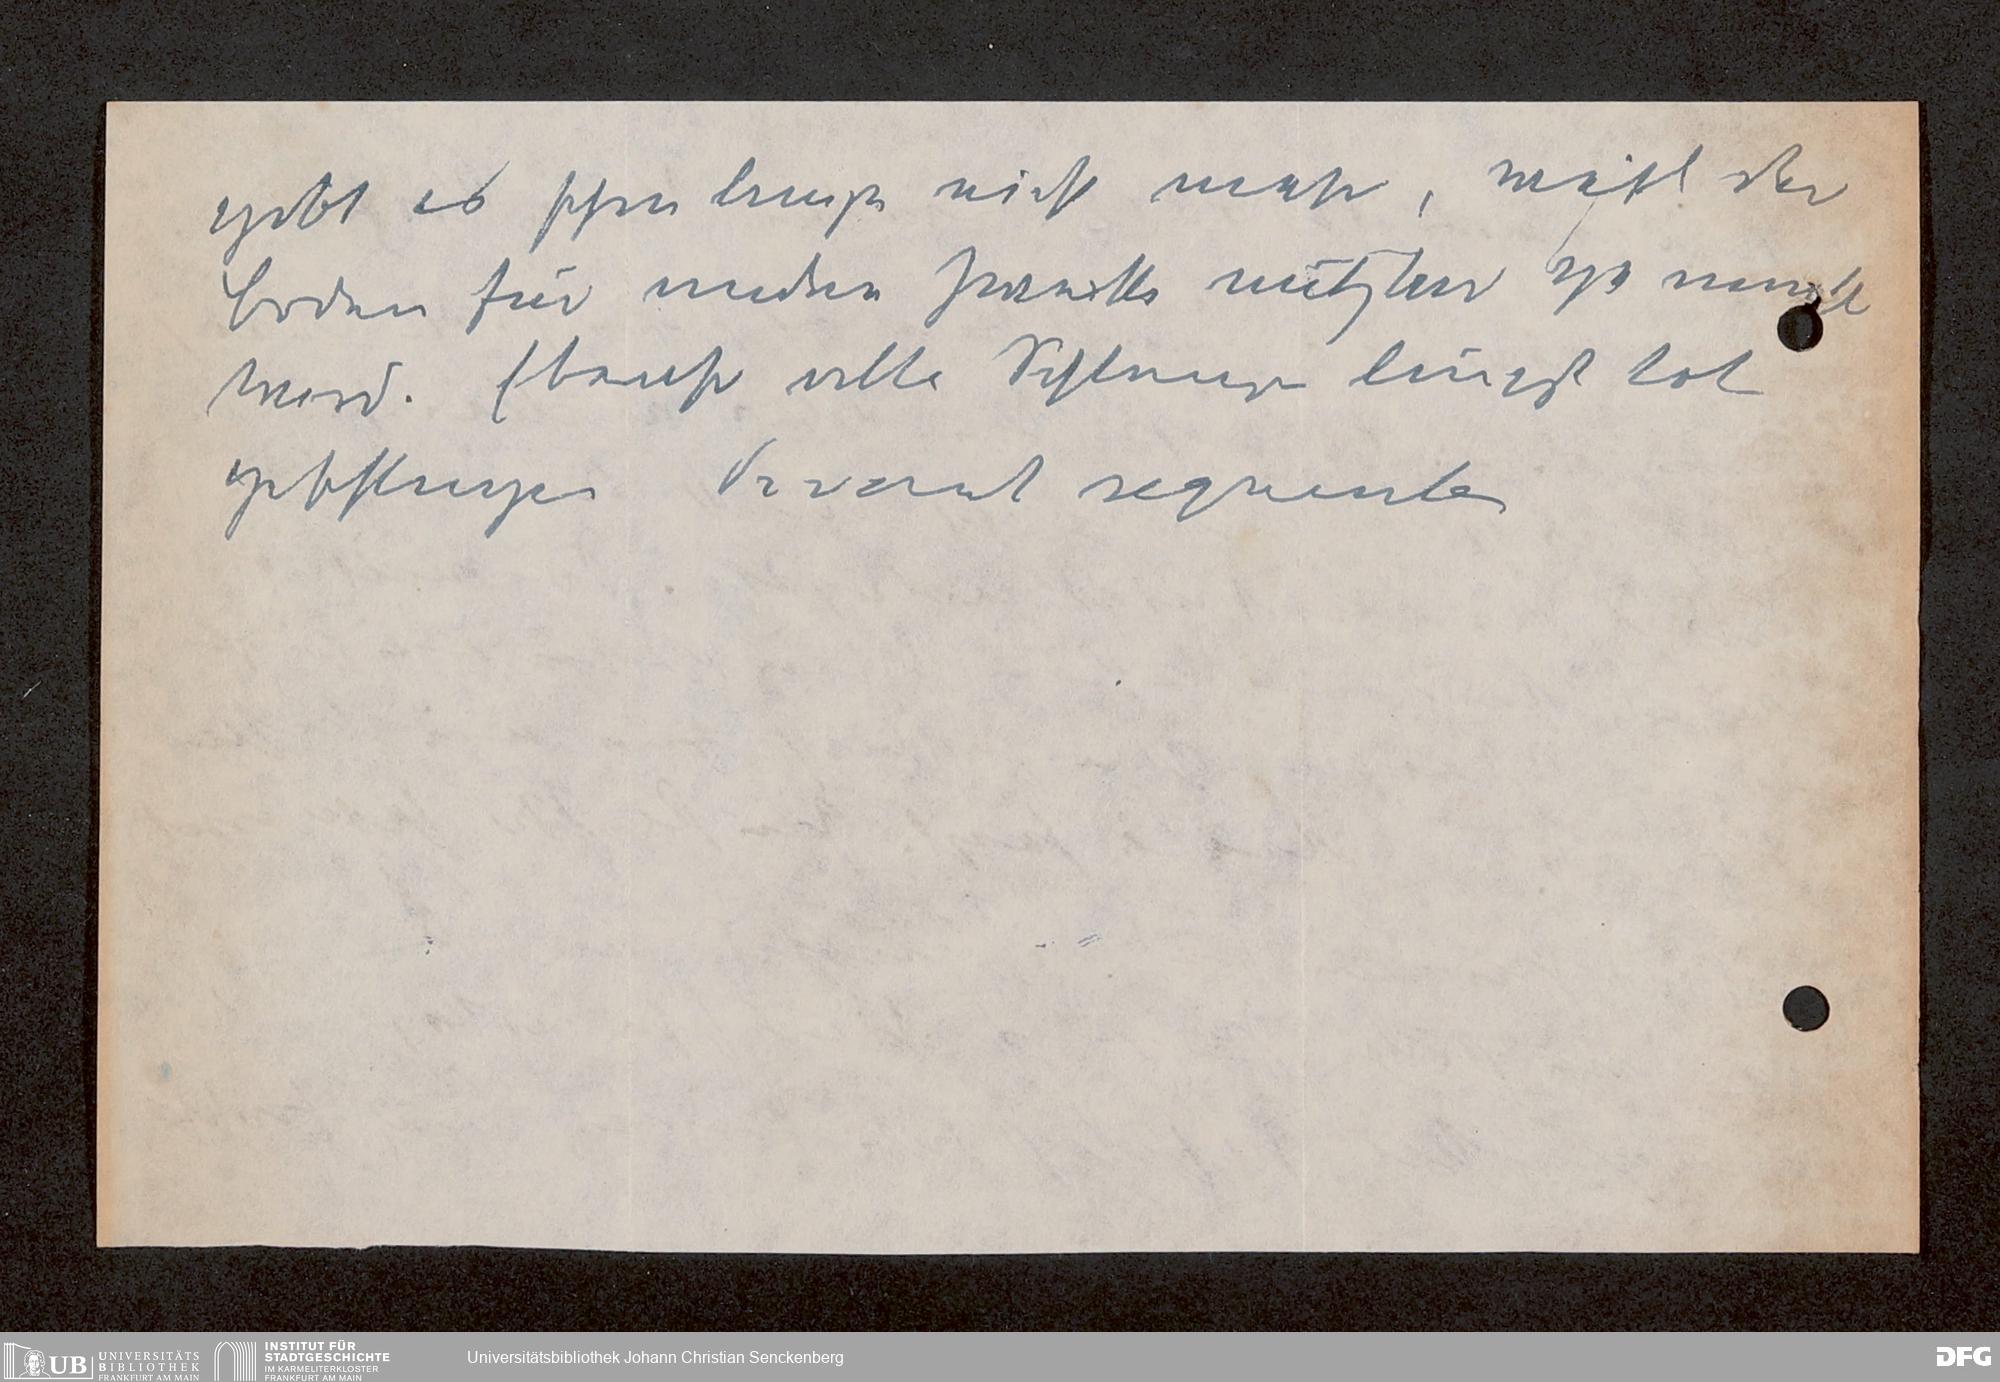 gibt es schon lange nicht mehr, weil der
Boden für andere Zwecke nutzbar gemacht
ward. Ebenso alle Schlangen längst tot
geschlagen. Vivant sequentes
UB UNIVERSITÄTS
BIBLIOTHEK
FRANKFURT AM MAIN
INSTITUT FÜR
STADTGESCHICHTE
IM KARMELITERKLOSTER
FRANKFURT AM MAIN
Universitätsbibliothek Johann Christian Senckenberg
DFG